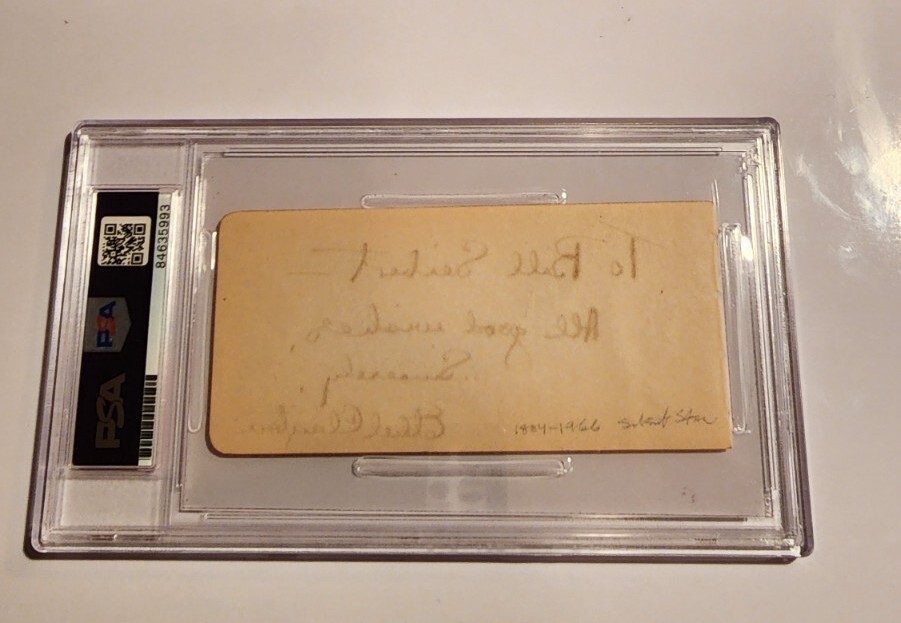 To Bill Seibert
All good wishes,
Sincerely,
Ethel Clayton
1884-1966 Silent Star
84635993
PSA
PSA